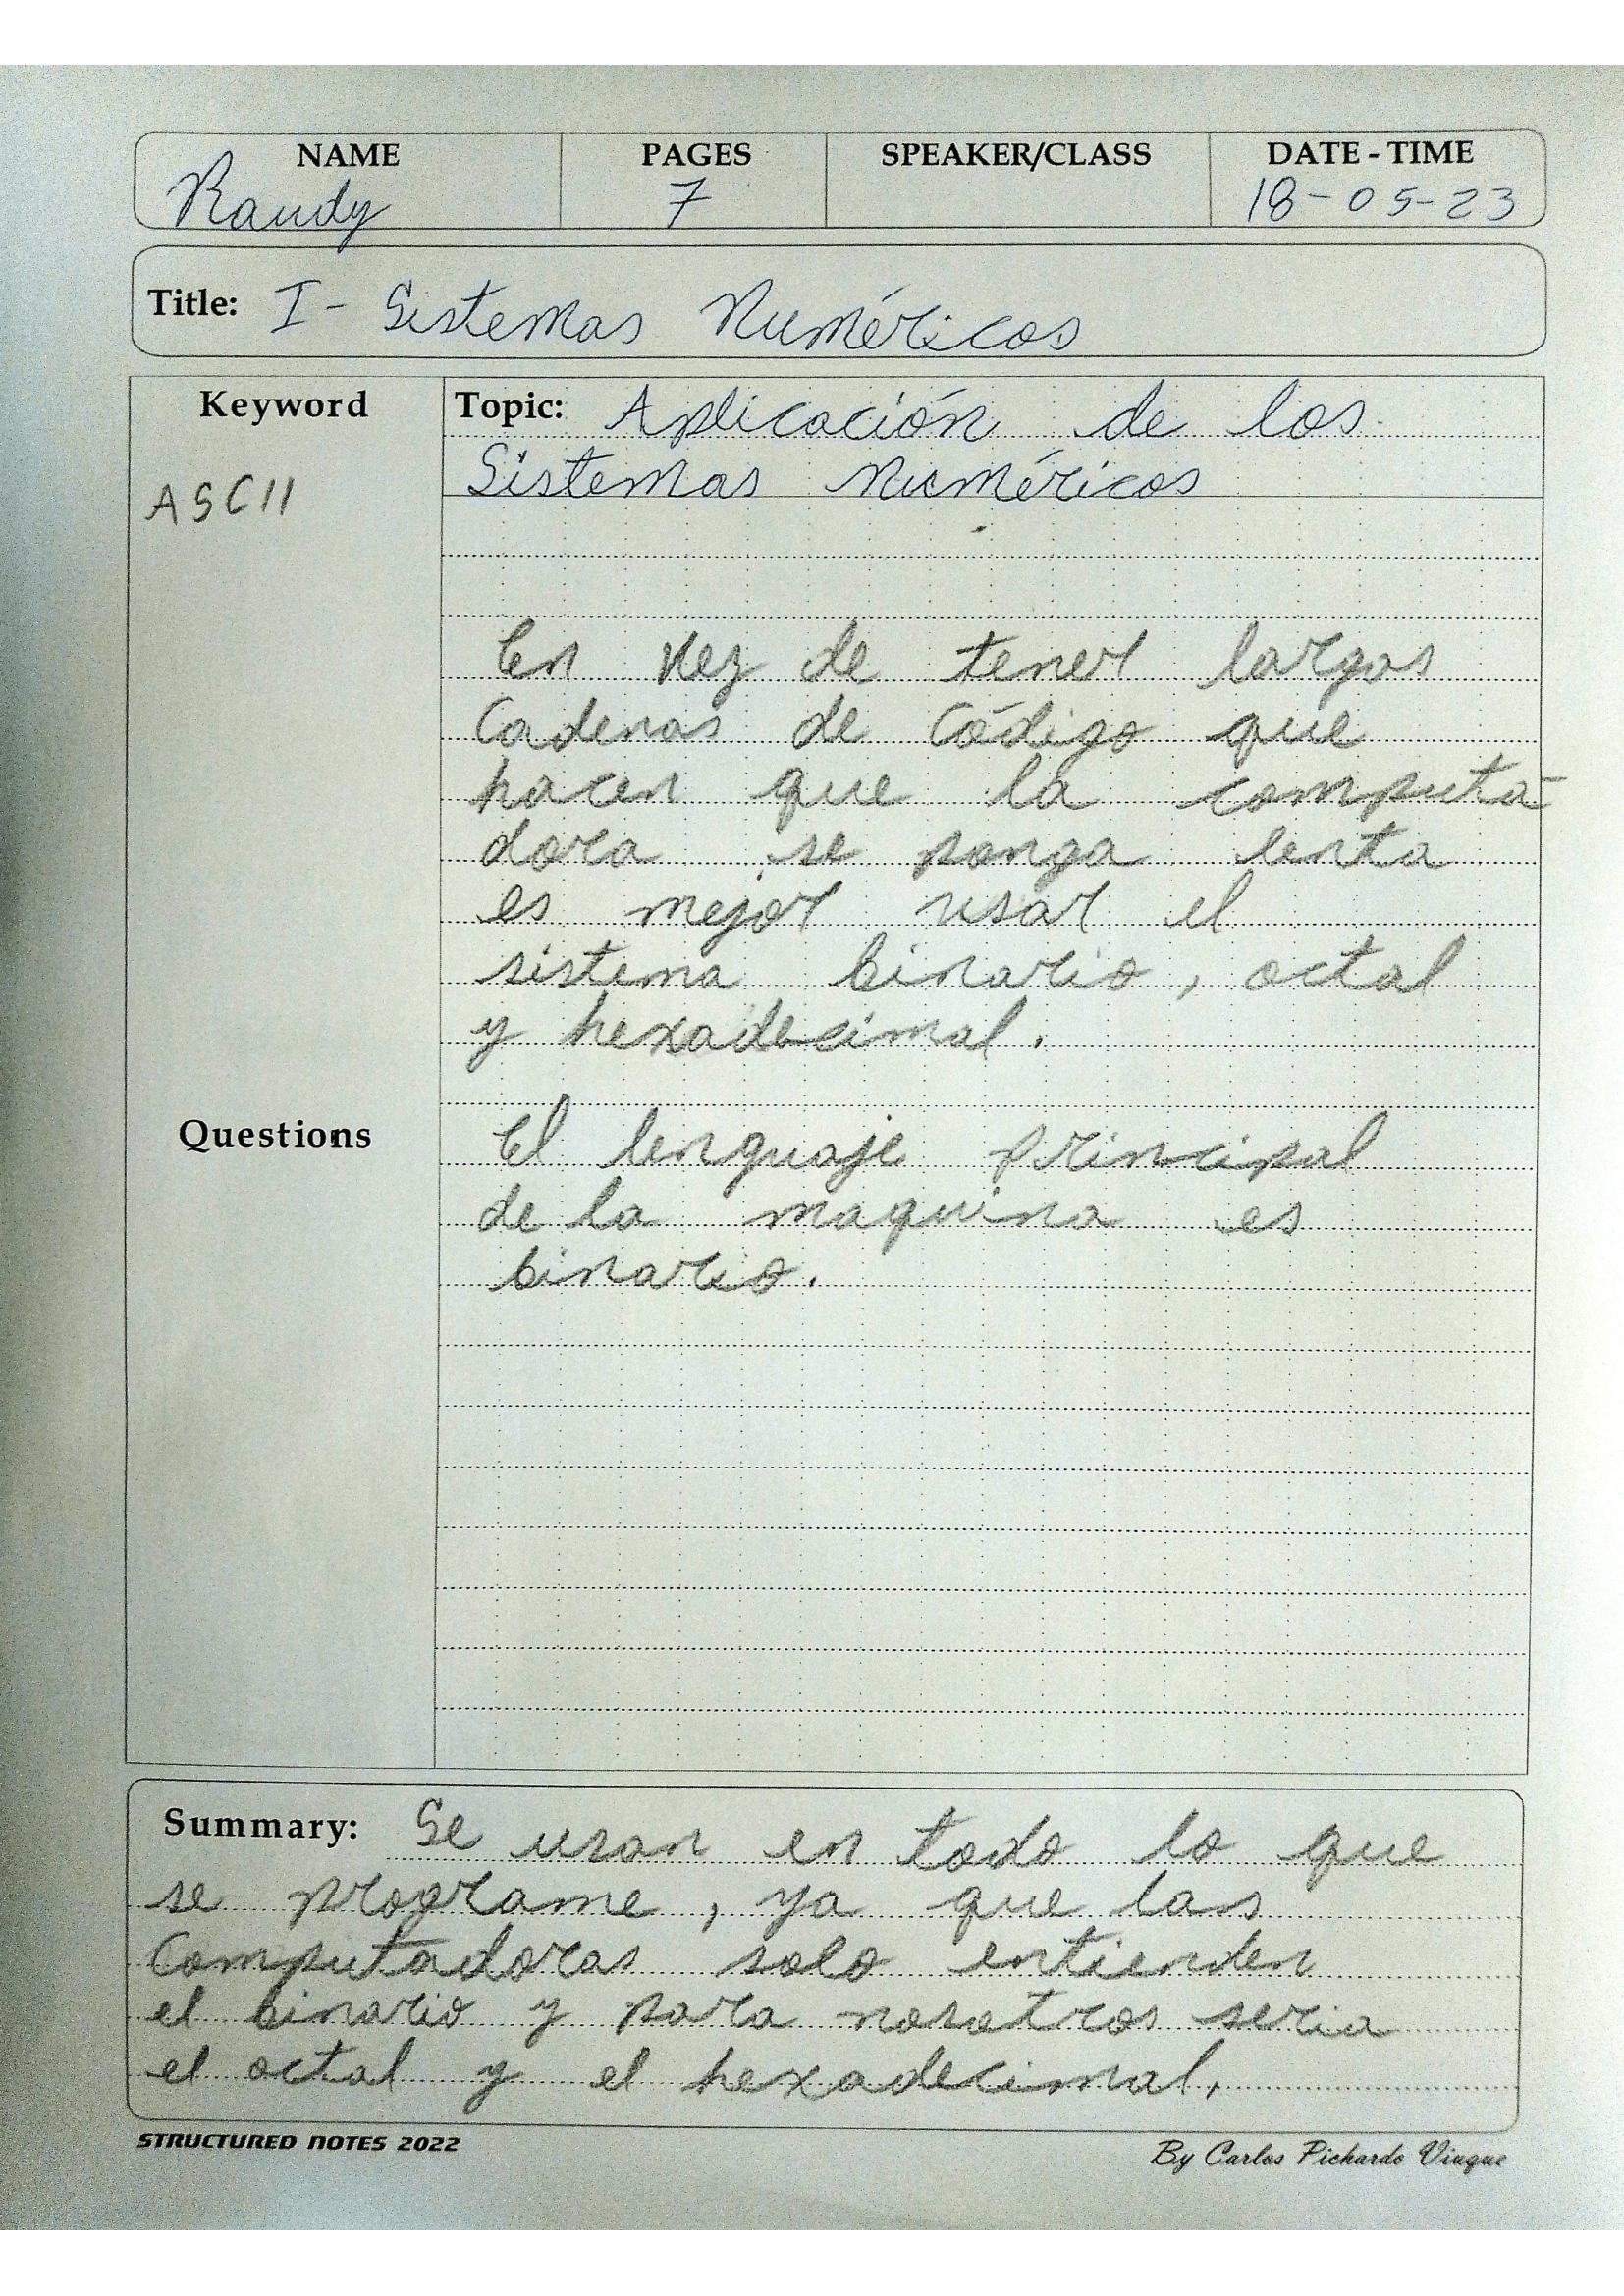 NAME PAGES SPEAKER/CLASS DATE - TIME
Randy 7 18-05-23
Title: I- Sistemas Numéricos
Keyword
ASCII
Topic: Aplicación de los
Sistemas Numéricos
En vez de tener largas
Cadenas de Código que
hacen que la computa-
dora se ponga lenta
es mejor usar el
sistema binario, octal
y hexadecimal.
Questions
El lenguaje principal
de la maquina es
binario.
Summary: Se usan en todo lo que
se programe, ya que las
Computadoras solo entienden
el binario y para nosotros seria
el octal y el hexadecimal.
STRUCTURED NOTES 2022
By Carlos Pichardo Viuque